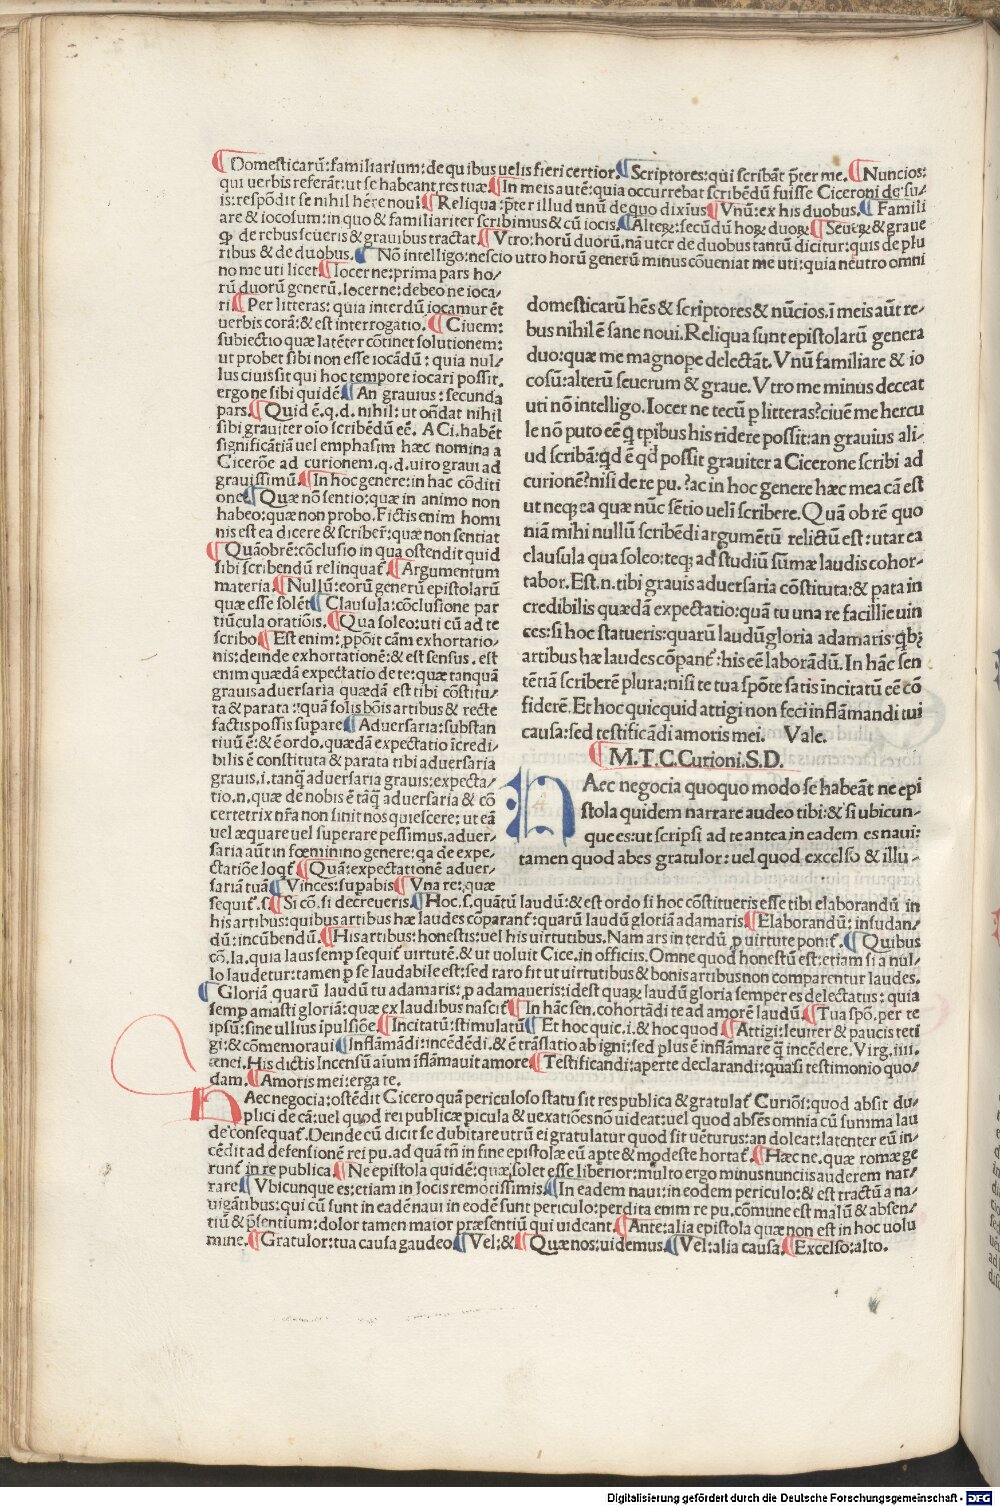 ¶Domesticarū:familiarium:de quibus uelis fieri certior.¶Scriptores:qui scribāt p̄ter me.¶Nuncios:
qui uerbis referāt:ut se habeant res tuæ.¶In meis autē:quia occurrebat scribēdū fuisse Ciceroni de su/
is:respōdit se nihil hēre noui.¶Reliqua:p̄ter illud unū de quo dixi us¶Vnū:ex his duobus.¶Famili
are & iocosum:in quo & familiariter scribimus & cū iocis.¶Alterꝝ:secūdū hoꝝ duoꝝ.¶Seueꝝ & graue
ꝙ de rebus seueris & grauibus tractat.¶Vtro:horū duorū.nā uter de duobus tantū dicitur:quis de plu
ribus & de duobus.¶Nō intelligo:nescio utro horū generū minus cōueniat me uti:quia neutro omni
no me uti licet.¶Iocer ne:prima pars ho/
rū duorū generū.Iocer ne:debeo ne ioca/
ri.¶Per litteras:quia interdū iocamur ēt
uerbis corā:& est interrogatio.¶Ciuem:
subiectio quæ latēter cōtinet solutionem:
ut probet sibi non esse iocādū:quia nul/
lus ciuis sit qui hoc tempore iocari possit.
ergo ne sibi quidē.¶An grauius:secunda
pars.¶Quid ē.q.d.nihil:ut oñdat nihil
sibi grauiter oio scribēdū eē. A Ci.habēt
significātiā uel emphasim hæc nomina a
Cicerōe ad curionem.q.d.uiro graui ad
grauissimū.¶In hoc genere:in hac cōditi
one.¶Quæ nō sentio:quæ in animo non
habeo:quæ non probo.Fictis enim homi
nis est ea dicere & scriber̄:quæ non sentiat
¶Quāobrē:cōclusio in qua ostendit quid
sibi scribendū relinquat̄.¶Argumentum
materia.¶Nullū:eorū generū epistolarū
quæ esse solēt¶Clausula:cōclusione par
tiūcula oratiōis.¶Qua soleo:uti cū ad te
scribo.¶Est enim:ꝓpōit cām exhortatio/
nis:deinde exhortationē:& est sensus.est
enim quædā expectatio de te:quæ tanquā
grauis aduersaria quædā est tibi cōstitu/
ta & parata:quā solis bōis artibus & recte
factis possis supare¶Aduersaria:substan
tiuū ē:& ē ordo.quædā expectatio icredi/
bilis ē constituta & parata tibi aduersaria
grauis.i.tanq̄ aduersaria grauis:expecta/
tio.n.quæ de nobis ē tāq̄ aduersaria & cō
certetrix nr̄a non sinit nos quiescere:ut eā
uel æquare uel superare pessimus.aduer/
saria aūt in fœminino genere:qa de expe/
ctatiōe loqt̄.¶Quā:expectationē aduer/
sariā tuā¶Vinces:supabis¶Vna re:quæ
domesticarū hēs & scriptores & nūcios.i meis aūt re/
bus nihil ē sane noui.Reliqua sunt epistolarū genera
duo:quæ me magnope delectāt.Vnū familiare & io
cosū:alterū seuerum & graue.Vtro me minus deceat
uti nō intelligo.Iocer ne tecū p litteras?ciuē me hercu
le nō puto eē q̄ tpibus his ridere possit:an grauius ali/
ud scribā:qd ē qd possit grauiter a Cicerone scribi ad
curionē?nisi de re pu.?ac in hoc genere hæc mea cā est
ut neqꝫ ea quæ nūc sētio uelī scribere.Quā ob rē quo
niā mihi nullū scribēdi argumētū relictū est:utar ea
clausula qua soleo:teqꝫ ad studiū sūmæ laudis cohor/
tabor.Est.n.tibi grauis aduersaria cōstituta:& pata in
credibilis quædā expectatio:quā tu una re facillie uin
ces:si hoc statueris:quarū laudū gloria adamaris.qbꝫ
artibus hæ laudes cōpant̄:his eē laborādū.In hāc sen
tētiā scriberē plura:nisi te tua spōte satis incitatū eē cō
fiderē.Et hoc quicquid attigi non feci inflāmandi tui
causa:sed testificādi amoris mei. Vale.
¶M.T.C.Curioni.S.D.
HAec negocia quoquo modo se habeāt ne epi
stola quidem narrare audeo tibi:& si ubicun/
que es:ut scripsi ad te antea in eadem es naui:
tamen quod abes gratulor:uel quod excelso & illu/
sequit̄.s.¶Si cō.si decreueris.¶Hoc.s.quātū laudū:& est ordo si hoc cōstitueris esse tibi elaborandū in
his artibus:quibus artibus hæ laudes cōparant̄:quarū laudū gloriā adamaris.¶Elaborandū:insudan/
dū:incūbendū.¶His artibus:honestis:uel his uirtutibus.Nam ars interdū p uirtute ponit̄.¶Quibus
cō.la.quia laus semp sequit̄ uirtutē.& ut uoluit Cice.in officiis.Omne quod honestū est:etiam si a nul/
lo laudetur:tamen p se laudabile est:sed raro fit ut uirtutibus & bonis artibus non comparentur laudes.
¶Gloriā quarū laudū tu adamaris:p adamaueris:idest quaꝝ laudū gloria semper es delectatus:quia
semp amasti gloriā:quæ ex laudibus nascit̄¶In hāc sen.cohortādi te ad amorē laudū.¶Tua spō.per te
ipsū:sine ullius ipulsiōe.¶Incitatū:stimulatū¶Et hoc quic.i.& hoc quod.¶Attigi:leuiter & paucis teti
gi:& cōmemoraui¶Inflāmādi:incēdēdi.& ē trāslatio ab igni:sed plus ē inflāmare q̄ incēdere.Virg.iiii.
ænei.His dictis Incensū aium īflāmauit amore.¶Testificandi:aperte declarandi:quasi testimonio quo/
dam.¶Amoris mei:erga te.
HAec negocia:ostēdit Cicero quā periculoso statu sit res publica & gratulat̄ Curiōi:quod absit du/
plici de cā:uel quod rei publicæ picula & uexatiōes nō uideat:uel quod absēs omnia cū summa lau
de consequat̄.Deinde cū dicit se dubitare utrū ei gratulatur quod sit uēturus:an dolcat:latenter eū in/
cēdit ad defensionē rei pu.ad quā tn̄ in fine epistolæ eū apte & modeste hortat̄.¶Hæc ne.quæ romæ ge
runt̄ in re publica.¶Ne epistola quidē:quæ solet esse liberior:multo ergo minus nunciis auderem nar/
rare¶Vbicunque es:etiam in locis remotissimis.¶In eadem naui:in eodem periculo:& est tractū a na/
uigātibus:qui cū sunt in eadē naui in eodē sunt periculo:perdita enim re pu.cōmune est malū & absen/
tiū & p̄sentium:dolor tamen maior præsentiū qui uidcant.¶Ante:alia epistola quæ non est in hoc uolu
mine.¶Gratulor:tua causa gaudeo.¶Vel:&¶Quæ nos:uidemus.¶Vel:alia causa.¶Excelso:alto.
Digitalisierung gefördert durch die Deutsche Forschungsgemeinschaft - DFG